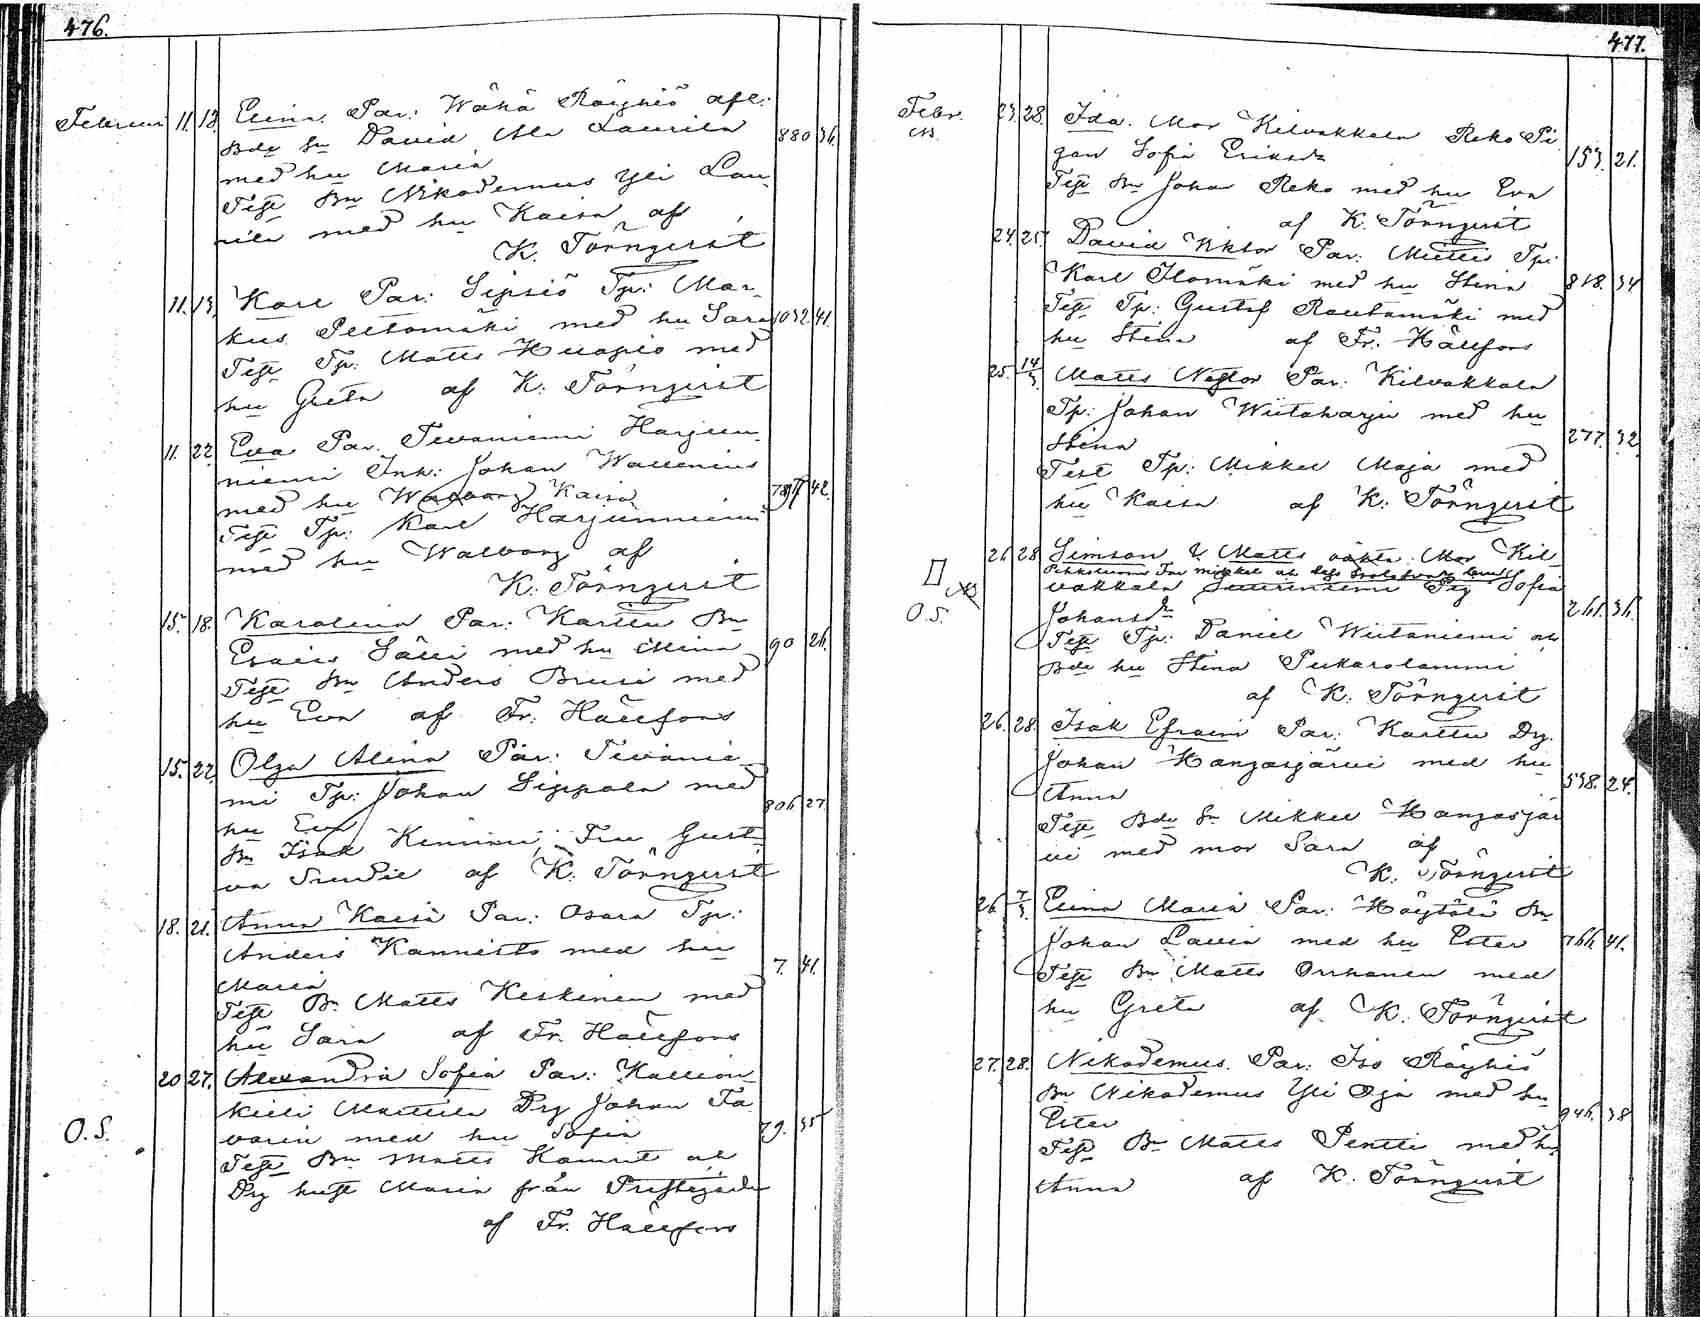 476.
Februari 11. 13. Elina. Par: Wähä Röyhiö afl:
Bde Sn David Ala Laurila 880 36.
med hu Maria
Test Bn Nikodemus Yli Lau-
rila med hu Kaisa af
K. Törnqvist
11. 13. Karl Par: Sipsiö Tp: Mar-
kus Peltomäki med hu Sara 1032. 41.
Test Tp: Matts Huapio med
hu Greta af K: Törnqvist
11. 22. Eva Par. Tevaniemi Harjun-
niemi Inh: Johan Wallenius
med hu Kaisa 42.
Test Tp: Karl Harjunniemi
med hu Walborg af
K. Törnqvist
15. 18. Karolina Par: Karttu Bn
Esaias Sälli med hu Mina 90 26.
Test Bn Anders Brusi med
hu Eva af Fr: Hällfors
15. 22. Olga Alina Par: Tevanie-
mi Tp: Johan Sippola med
hu Eva 806 27.
Bn Isak Kenimi, Fru Gusta-
va af K: Törnqvist
18. 21. Anna Kaisa Par: Osara Tp:
Anders Kannisto med hu
Maria 7. 41.
Test Bn Matts Keskinen med
hu Sara af Fr. Hällfors
20 27. Alexandra Sofia Par: Kallion-
kieli Mattila Drg Johan Ta-
varin med hu Sofia 79. 35
O.S.
Test Bn Matts Komsi och
Drg hust Maria från Prestegården
af Fr. Hällfors
477.
Febr. 23. 28. Ida. Mor Kilvakkala Reko Pi-
gan Sofia Eriksdr 153. 21.
Test Bn Johan Reko med hu Eva
af K. Törnqvist
24. 25. David Viktor Par: Miettis Tp:
Karl Ilomäki med hu Stina 818. 34
Test Tp: Gustaf Rautamäki med
hu Stina af Fr. Hällfors
25. 14/3. Matts Nestor Par: Kilvakkala
Tp: Johan Wiitaharju med hu
Stina 277. 32
Test Tp: Mikkel Maja med
hu Kaisa af K: Törnqvist
26. 28. Simson & Matts oäkta. Mor Kil-
vakkala Pig Sofia
O.S.
Johansdr 261. 36.
Test Tp: Daniel Wiitaniemi och
Bde hu Stina Pukarolammi
af K: Törnqvist
26. 28. Isak Efraim Par: Karttu Drg.
Johan Kangasjärvi med hu
Anna 538. 24.
Test Bde Sn Mikkel Kangasjär-
vi med mor Sara af
K. Törnqvist
26. 7/3. Elina Maria Par: Höytölä Bn
Johan Lauin med hu Ester 766 41.
Test Bn Matts Orrhanen med
hu Greta af K. Törnqvist
27. 28. Nikodemus. Par: Iso Röyhiö
Bn Nikodemus Yli Oja med hu
Ester 946. 38
Test Bn Matts Pentti med hu
Anna af K. Törnqvist